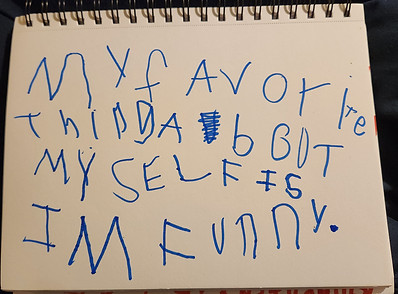 MY fAVOrIte
thiDDA bBOT
MY SELF IS
IM FUNNY.